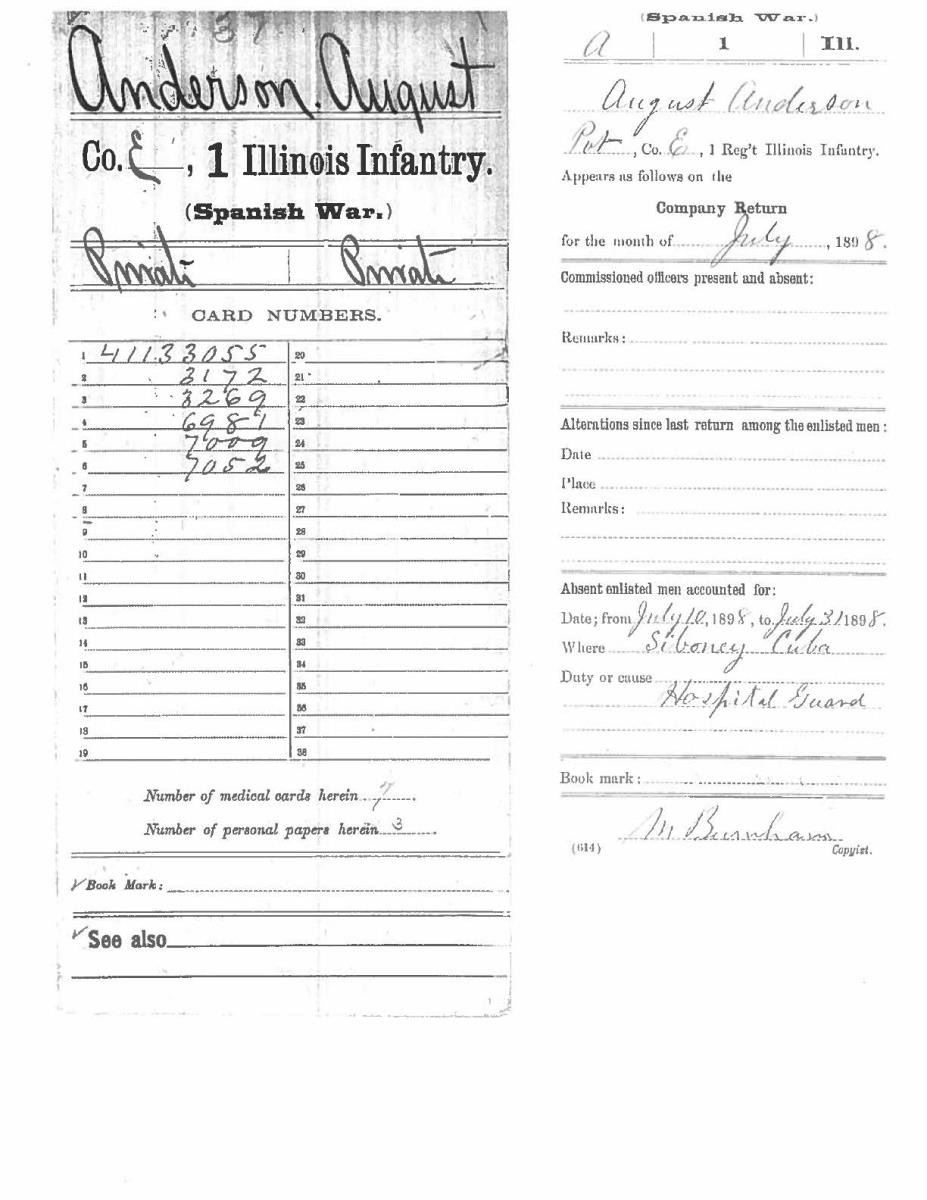 Anderson, August
Co. E, 1 Illinois Infantry.
(Spanish War.)
Private | Private
CARD NUMBERS.
1 41133055 20
2 3172 21
3 3269 22
4 6981 23
5 7009 24
6 7052 25
7 26
8 27
9 28
10 29
11 30
12 31
13 32
14 33
15 34
16 35
17 36
18 37
19 38
Number of medical cards herein
Number of personal papers herein 3
Book Mark:
See also
(Spanish War.)
A | 1 | Ill.
August Anderson
Pvt, Co. E, 1 Reg't Illinois Infantry.
Appears as follows on the
Company Return
for the month of July, 1898.
Commissioned officers present and absent:
Remarks:
Alterations since last return among the enlisted men:
Date
Place
Remarks:
Absent enlisted men accounted for:
Date; from July 10, 1898, to July 31 1898.
Where Siboney Cuba
Duty or cause
Hospital Guard
Book mark:
M Burnham
(614) Copyist.